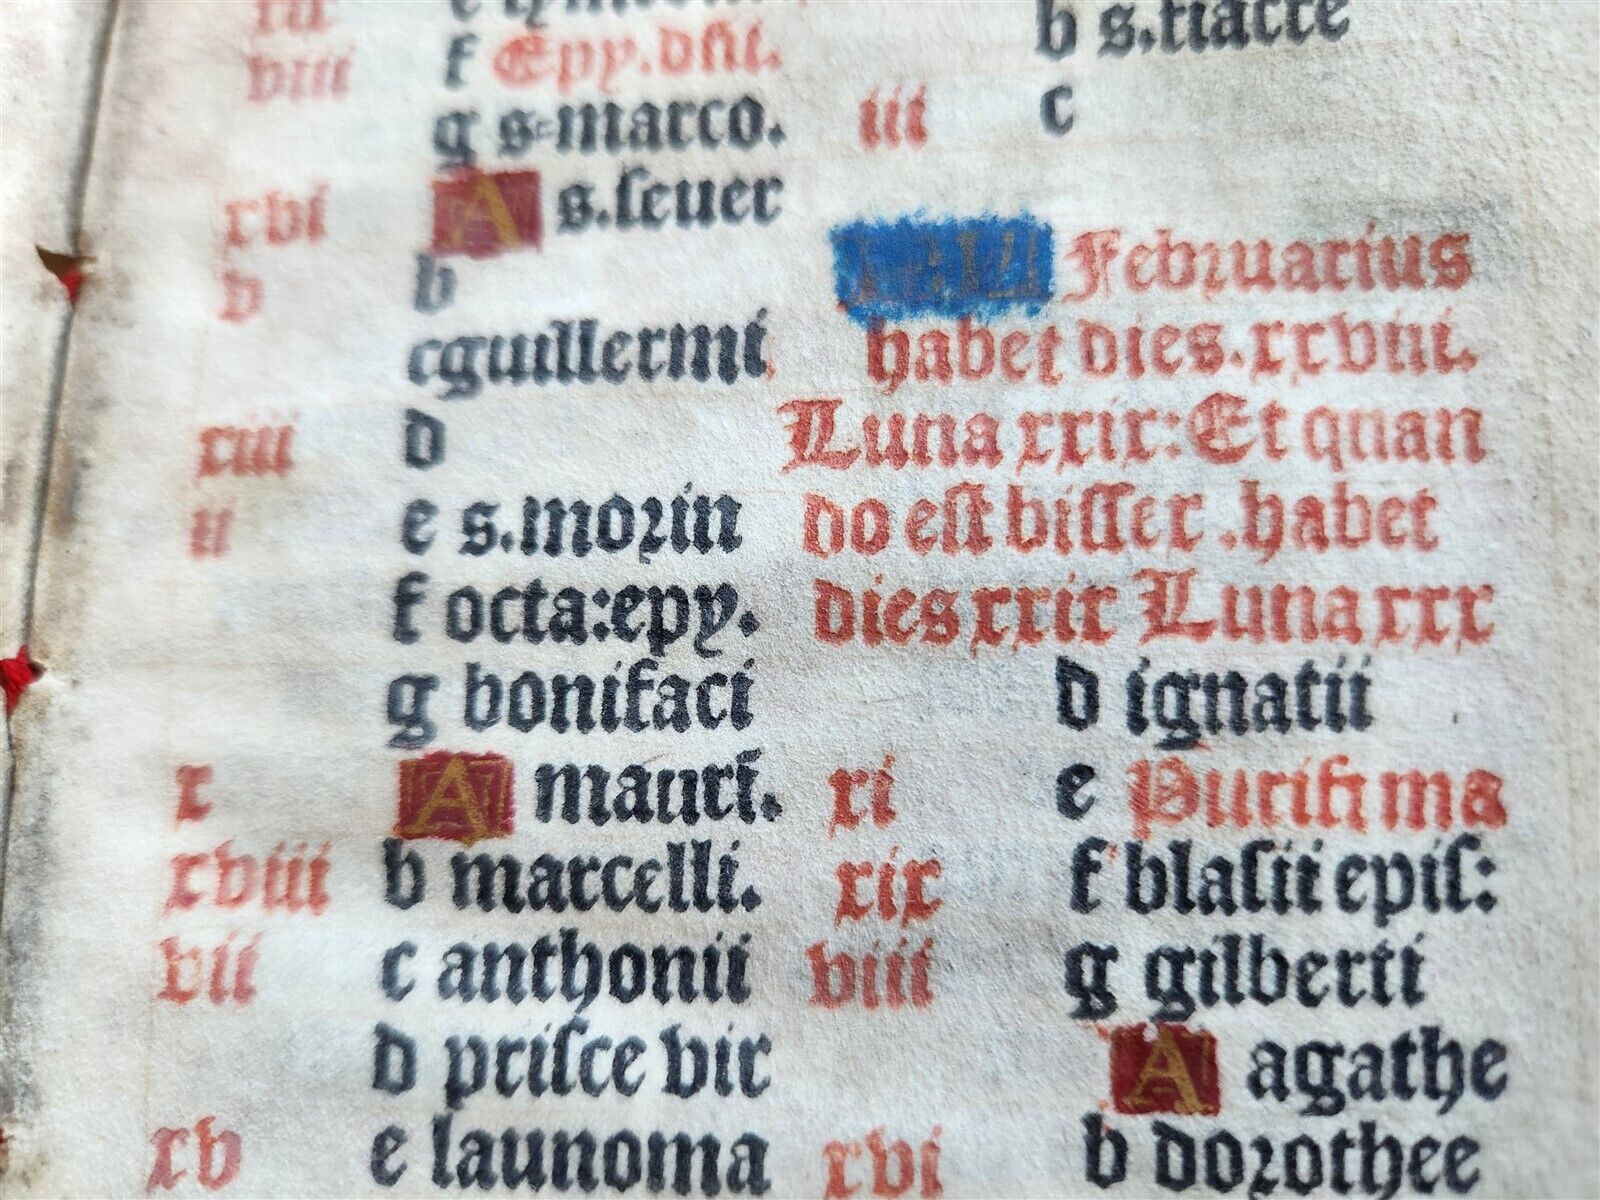 viii f Epy. dñi.
g s marco.
xvi A s. ſeuer
v b
c guillermi
xiii d
ii e s. morin
f octa: epy.
g bonifaci
x A mauri.
xviii b marcelli.
vii c anthonii
d priſce vir
xv e launoma
b s. fiacre
iii c
KL Februarius
habet dies. xxviii.
Luna xxix: Et quan
do eſt biſſex. habet
dies xxix Luna xxx
d ignatii
xi e Purifi ma
xix f blaſii epiſ:
viii g gilberti
A agathe
xvi b dorothee